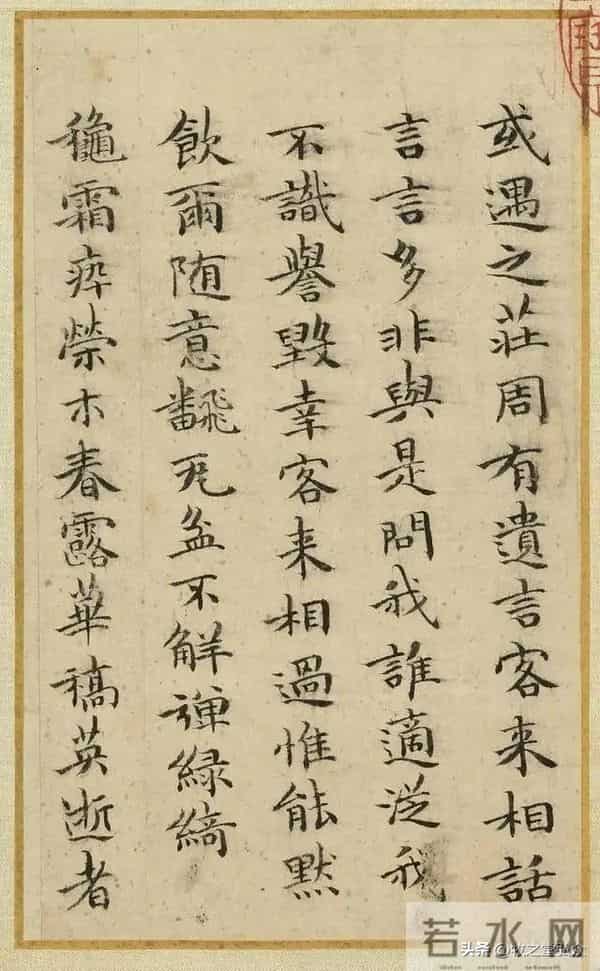 或遇之莊周有遺言客来相話
言言多非與是問我誰適從我
不識譽毀幸客来相過惟能默
飲爾随意飜瓦盆不解彈緑綺
穐霜瘁榮木春露華稿英逝者
若水网
头条